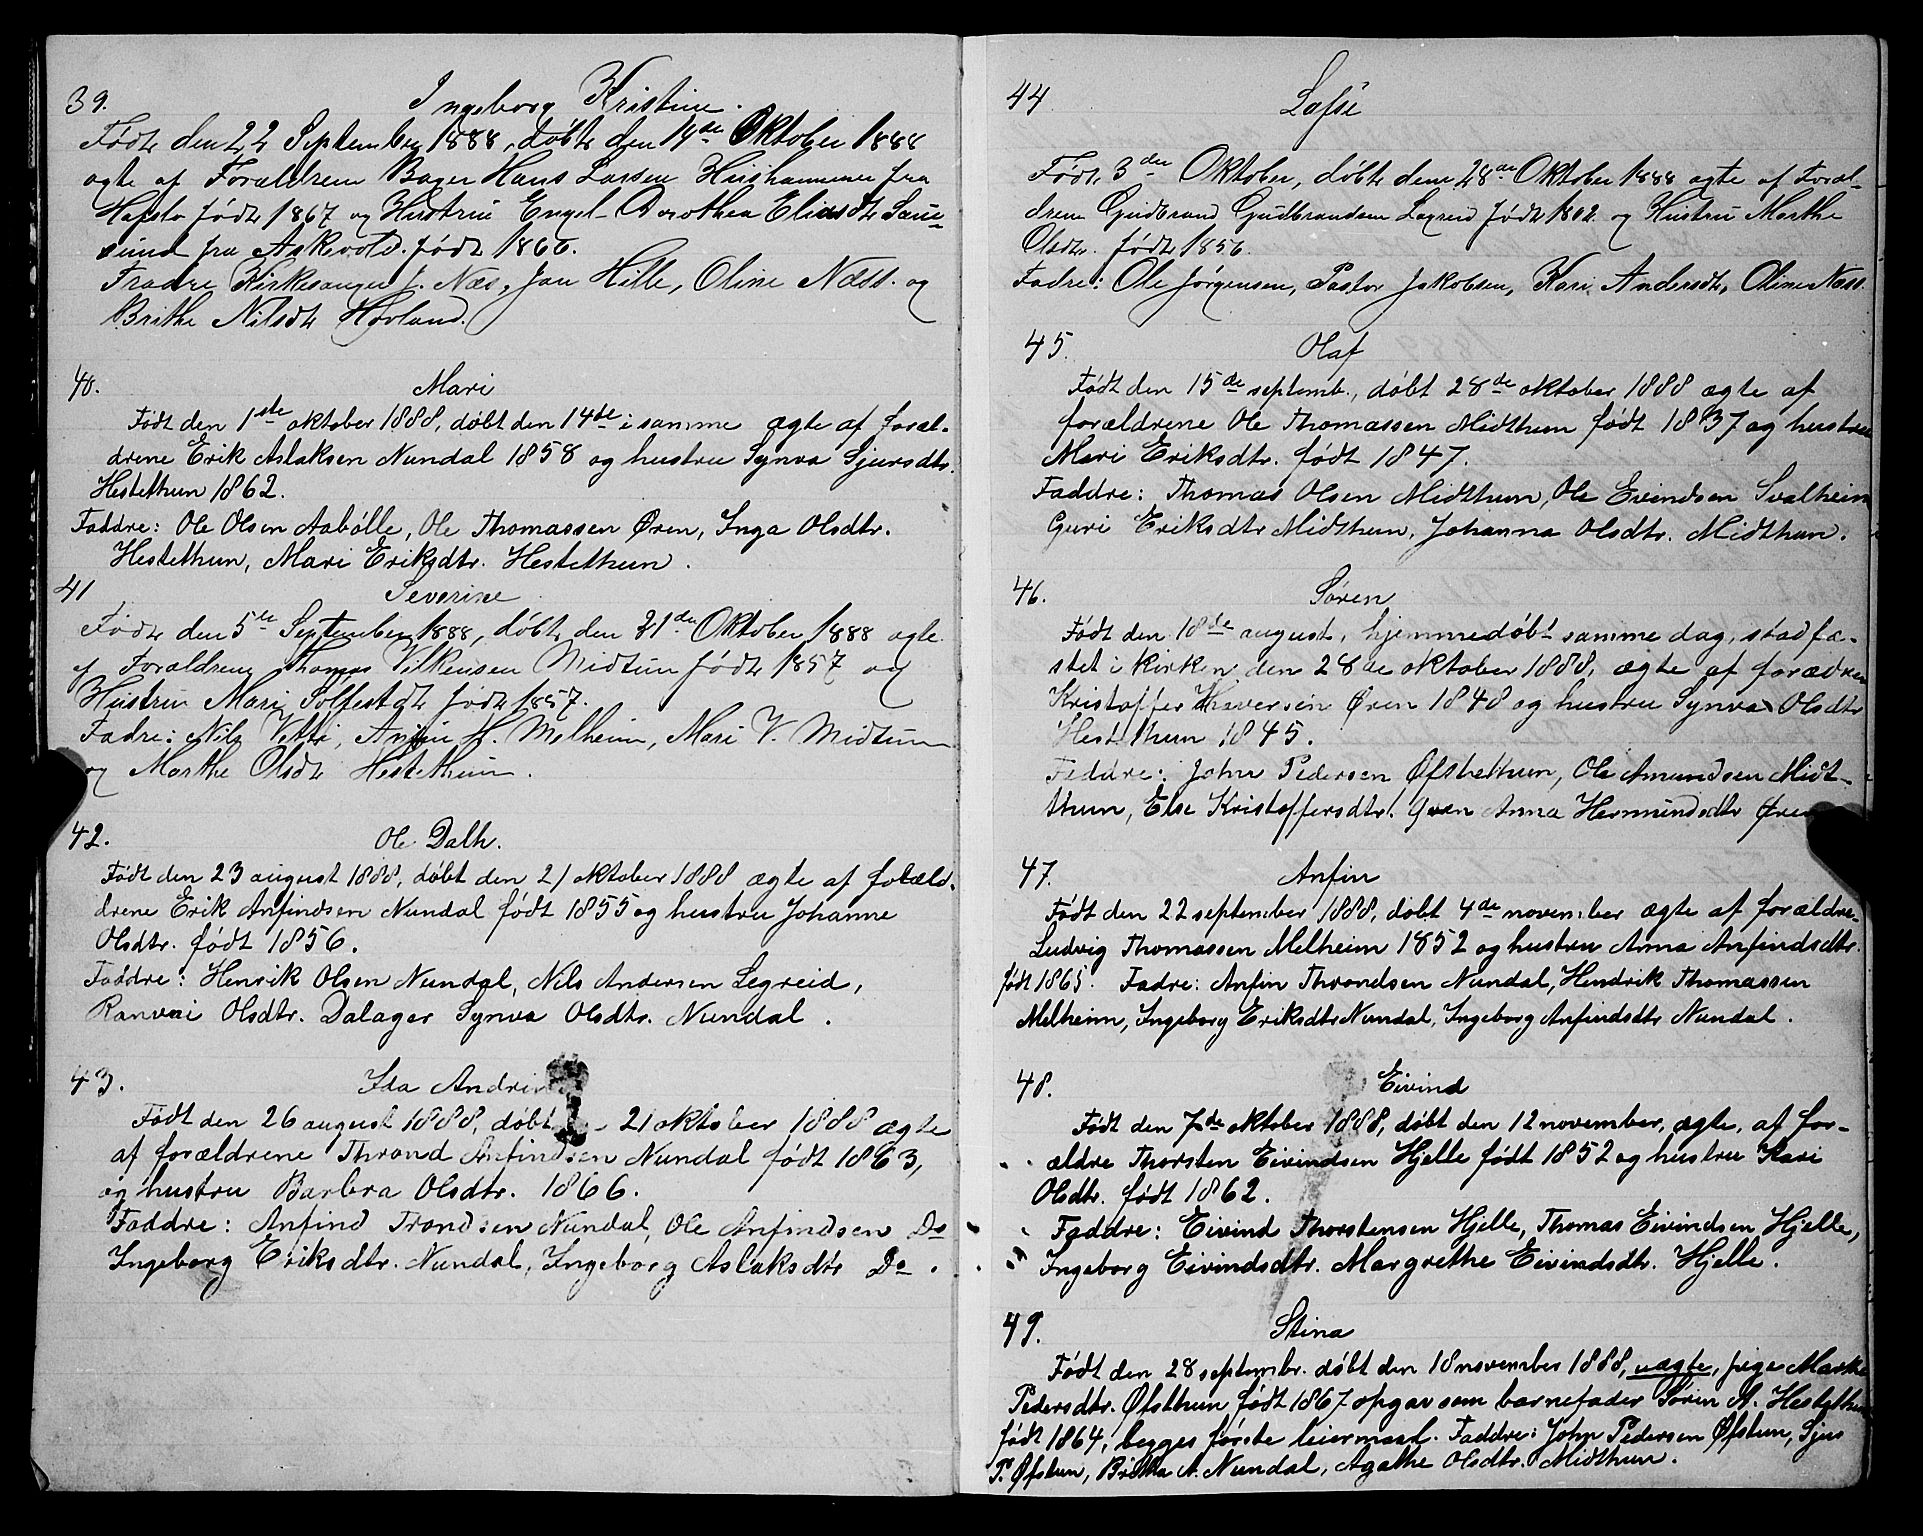 39.
Ingeborg Kristine.
Født den 22 September 1888, døbt den 14de Oktober 1888
ægte af Forældrene Bager Hans Larsen fra
Hafslo født 1867 og Hustru Engel Dorothea Eliasdtr
fra Askevold. født 1866.
Fadre Kirkesanger J. Næs, Jan Hille, Oline Næss. og
Brithe Nilsdtr Høvland.
40.
Mari
Født den 1ste oktober 1888, døbt den 14de i samme ægte af foræl-
drene Erik Aslaksen Nundal 1858 og hustru Synva Sjursdtr.
Hestethun 1862.
Faddre: Ole Olsen Aabølle, Ole Thomassen Øren, Inga Olsdtr.
Hestethun, Mari Eriksdtr. Hestethun.
41
Severine
Født den 5te September 1888, døbt den 21de Oktober 1888 ægte
af Forældrene Thomas Vilkensen Midtun født 1857 og
Hustru Mari født 1857.
Fadre: Nils Vetti, Anfin H. Melheim, Mari V. Midtun
og Marthe Olsdtr Hestethun.
42.
Ole Dalh.
Født den 23 august 1888, døbt den 21 oktober 1888 ægte af foræld-
drene Erik Anfindsen Nundal født 1855 og hustru Johanne
Olsdtr. født 1856.
Faddre: Henrik Olsen Nundal, Nils Andersen Legreid,
Ranvei Olsdtr. Dalager Synva Olsdtr. Nundal.
43.
Ida Andrin
Født den 26 august 1888, døbt 21 oktober 1888 ægte
af forældrene Thrond Anfindsen Nundal født 1863,
og hustru Barbra Olsdtr. 1866.
Faddre: Anfind Trondsen Nundal, Ole Anfindsen Do
Ingeborg Eriksdtr. Nundal, Ingeborg Aslaksdtr Do.
44
Født 3die Oktober, døbt den 28de Oktober 1888 ægte af Foræl-
drene Gudbrand Gudbrandsen Legreid født og Hustru Marthe
Olsdtr. født 1856.
Fadre: Ole Jørgensen, Pastor Jakobsen, Kari Andersdt, Oline Næss
45.
Olaf
Født den 15de septemb., døbt 28de oktober 1888 ægte af
forældrene Ole Thomassen Midthun født 1837 og hustru
Mari Eriksdtr. født 1847.
Faddre: Thomas Olsen Midthun, Ole Evindsen Svalheim
Guri Eriksdtr Midthun, Johanna Olsdtr. Midthun.
46.
Søren
Født den 18de august, hjemmedøbt samme dag, stadfæ-
stet i kirken den 28de oktober 1888, ægte af forædren
Kristoffer Øren 1848 og hustru Synva Olsdtr
Hestethun 1845.
Faddre: John Pedersen Øfsthethun, Ole Amundsen Midt-
thun, Else Kristoffersdtr. Øren Anna Hermundsdtr Øren
47.
Anfin
Født den 22 september 1888, døbt 4de november ægte af forældre-
Ludvig Thomassen Melheim 1852 og hustru Anna Anfindsdtr.
født 1865. Fadre: Anfin Throndsen Nundal, Hendrik Thomassen
Melheim, Ingeborg Eriksdtr Nundal, Ingeborg Anfindsdtr Nundal.
48.
Eivind
Født den 7de oktober 1888, døbt den 12 november, ægte, af for-
ældre Thorsten Eivindsen Hjelle født 1852 og hustru Kari
Olsdtr. født 1862.
Faddre: Eivind Thorstensen Hjelle, Thomas Eivindsen Hjelle,
Ingeborg Eivindsdtr. Margrethe Eivindsdtr. Hjelle.
49.
Stina
Født den 28 septembr. døbt den 18 november 1888, uægte, pige Marthe
Pedersdtr. Øfsthun født 1867 opgav som barnefader Søren A. Hestethun
født 1864, begges første leiermaal. Faddre: John Pedersen Øfstun, Sjur
P. Øfstun, Britha A. Nundal, Agathe Olsdtr. Midthun.